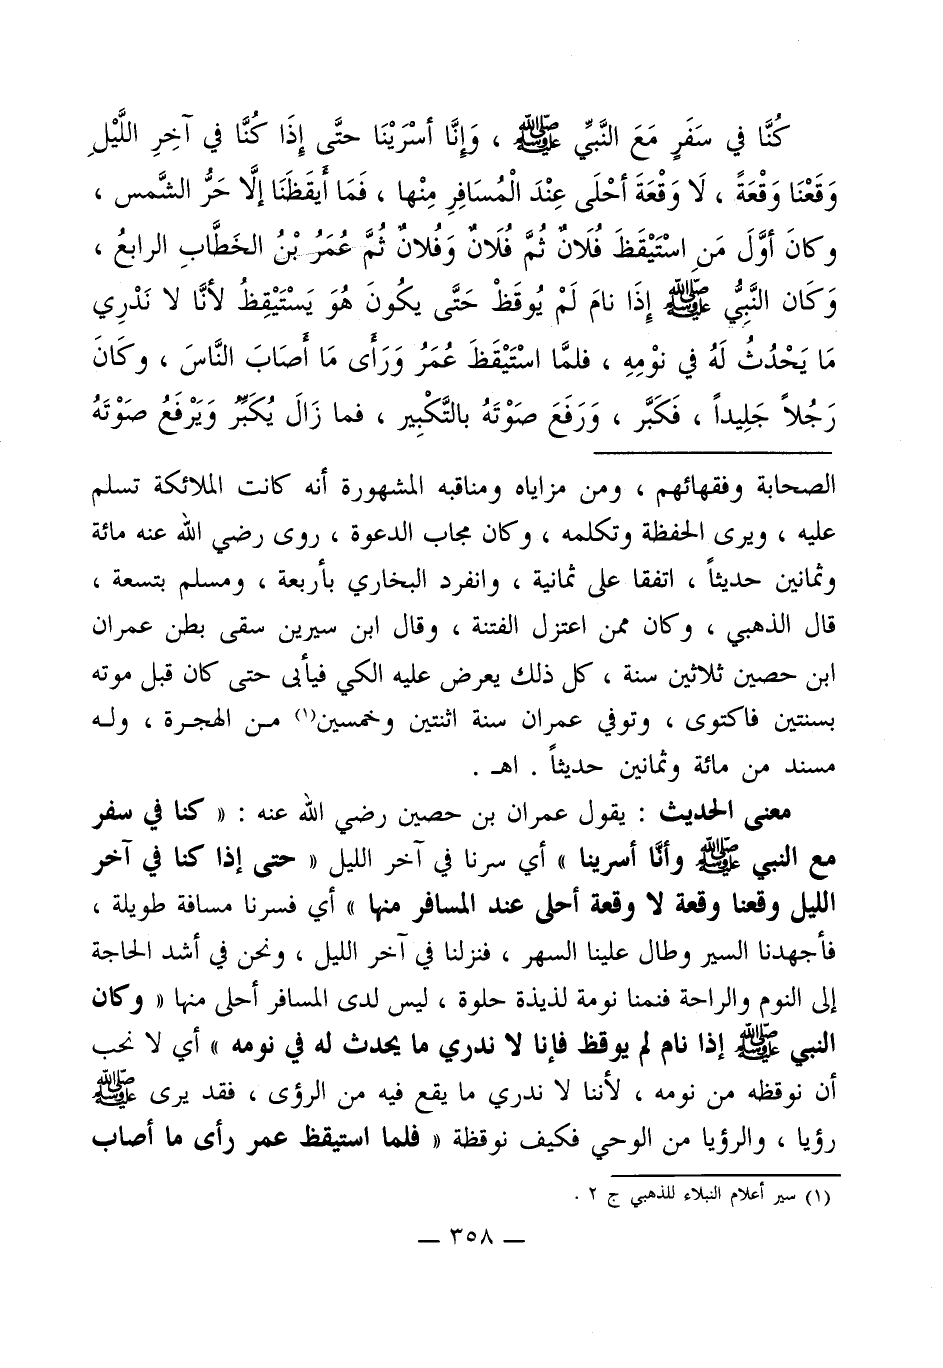 كُنَّا في سَفَرٍ مَعَ النَّبِيِّ ﷺ ، وَإِنَّا أسْرَيْنَا حتَّى إِذَا كُنَّا في آخِرِ اللَّيْلِ
وَقَعْنَا وَقْعَةً ، لَا وَقْعَةَ أحْلَى عِنْدَ الْمُسَافِرِ مِنْها ، فَمَا أَيقَظَنَا إلَّا حَرُّ الشَّمس ،
وكانَ أوَّلَ مَنِ اسْتَيْقَظَ فُلَانٌ ثُمَّ فُلَانٌ وَفُلانٌ ثُمَّ عُمَرُ بْنُ الخَطَّابِ الرابعُ ،
وَكَان النَّبِيُّ ﷺ إِذَا نامَ لَمْ يُوقَظْ حَتَّى يكُونَ هُوَ يَسْتَيْقِظُ لأنَّا لا نَدْرِي
مَا يَحْدُثُ لَهُ في نوْمِهِ ، فلمَّا اسْتَيْقَظَ عُمَرُ وَرَأَى مَا أَصَابَ النَّاسَ ، وكَانَ
رَجُلاً جَلِيداً ، فَكَبَّر ، وَرَفَعَ صَوْتَهُ بالتَّكْبِيرِ ، فما زَالَ يُكَبِّرُ وَيَرْفَعُ صَوْتَهُ
الصحابة وفقهائهم ، ومن مزاياه ومناقبه المشهورة أنه كانت الملائكة تسلم
عليه ، ويرى الحفظة وتكلمه ، وكان مجاب الدعوة ، روى رضي الله عنه مائة
وثمانين حديثاً ، اتفقا على ثمانية ، وانفرد البخاري بأربعة ، ومسلم بتسعة ،
قال الذهبي ، وكان ممن اعتزل الفتنة ، وقال ابن سيرين سقى بطن عمران
ابن حصين ثلاثين سنة ، كل ذلك يعرض عليه الكي فيأبى حتى كان قبل موته
بسنتين فاكتوى ، وتوفي عمران سنة اثنتين وخمسين(١) من الهجرة ، وله
مسند من مائة وثمانين حديثاً . اهـ .
معنى الحديث : يقول عمران بن حصين رضي الله عنه : « كنا في سفر
مع النبي ﷺ وأنَّا أسرينا » أي سرنا في آخر الليل « حتى إذا كنا في آخر
الليل وقعنا وقعة لا وقعة أحلى عند المسافر منها » أي فسرنا مسافة طويلة ،
فأجهدنا السير وطال علينا السهر ، فنزلنا في آخر الليل ، ونحن في أشد الحاجة
إلى النوم والراحة فنمنا نومة لذيذة حلوة ، ليس لدى المسافر أحلى منها « وكان
النبي ﷺ إذا نام لم يوقظ فإنا لا ندري ما يحدث له في نومه » أي لا نحب
أن نوقظه من نومه ، لأننا لا ندري ما يقع فيه من الرؤى ، فقد يرى ﷺ
رؤيا ، والرؤيا من الوحي فكيف نوقظة « فلما استيقظ عمر رأى ما أصاب
(١) سير أعلام النبلاء للذهبي ج ٢ .
— ٣٥٨ —